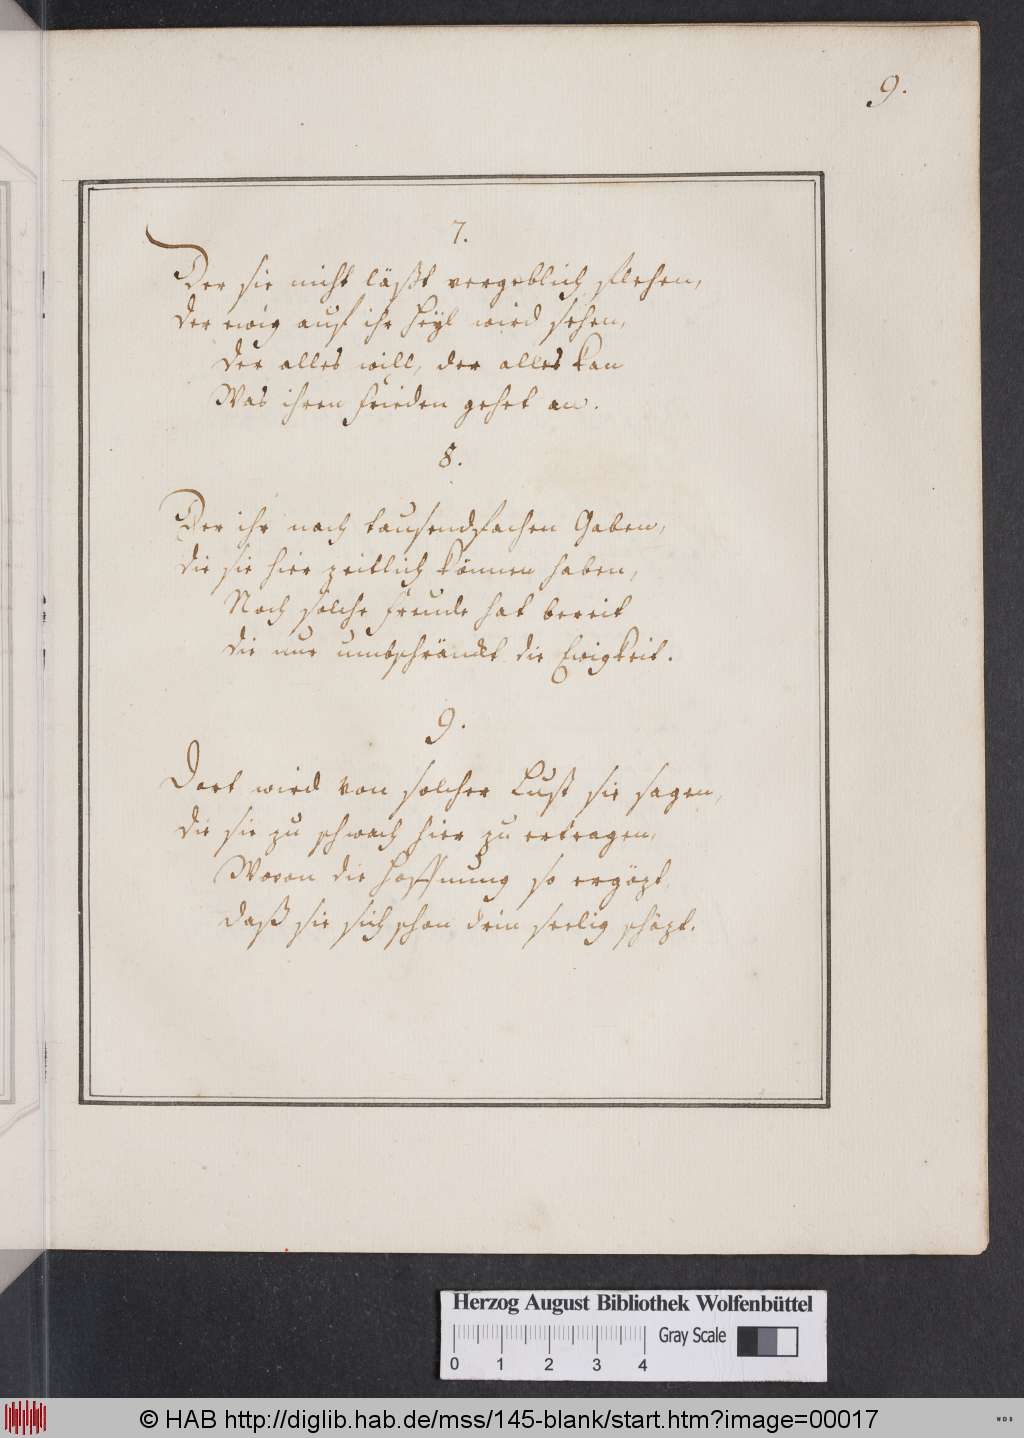 9.
7.
Der sie nicht läßt vergeblich flehen,
Der ewig auf ihr Heyl wird sehen,
Der alles will, der alles kan
Was ihren Frieden gehet an.
8.
Der ihr nach tausendfachen Gaben,
die sie hier zeitlich können haben,
Noch solche Freude hat bereit
die nur umbschränckt die Ewigkeit.
9.
Dort wird von solcher Lust sie sagen,
die sie zu schwach hier zu ertragen,
Woran die Hoffnung so ergözt
daß sie sich schon drin seelig schäzt.
Herzog August Bibliothek Wolfenbüttel
Gray Scale
0 1 2 3 4
© HAB http://diglib.hab.de/mss/145-blank/start.htm?image=00017